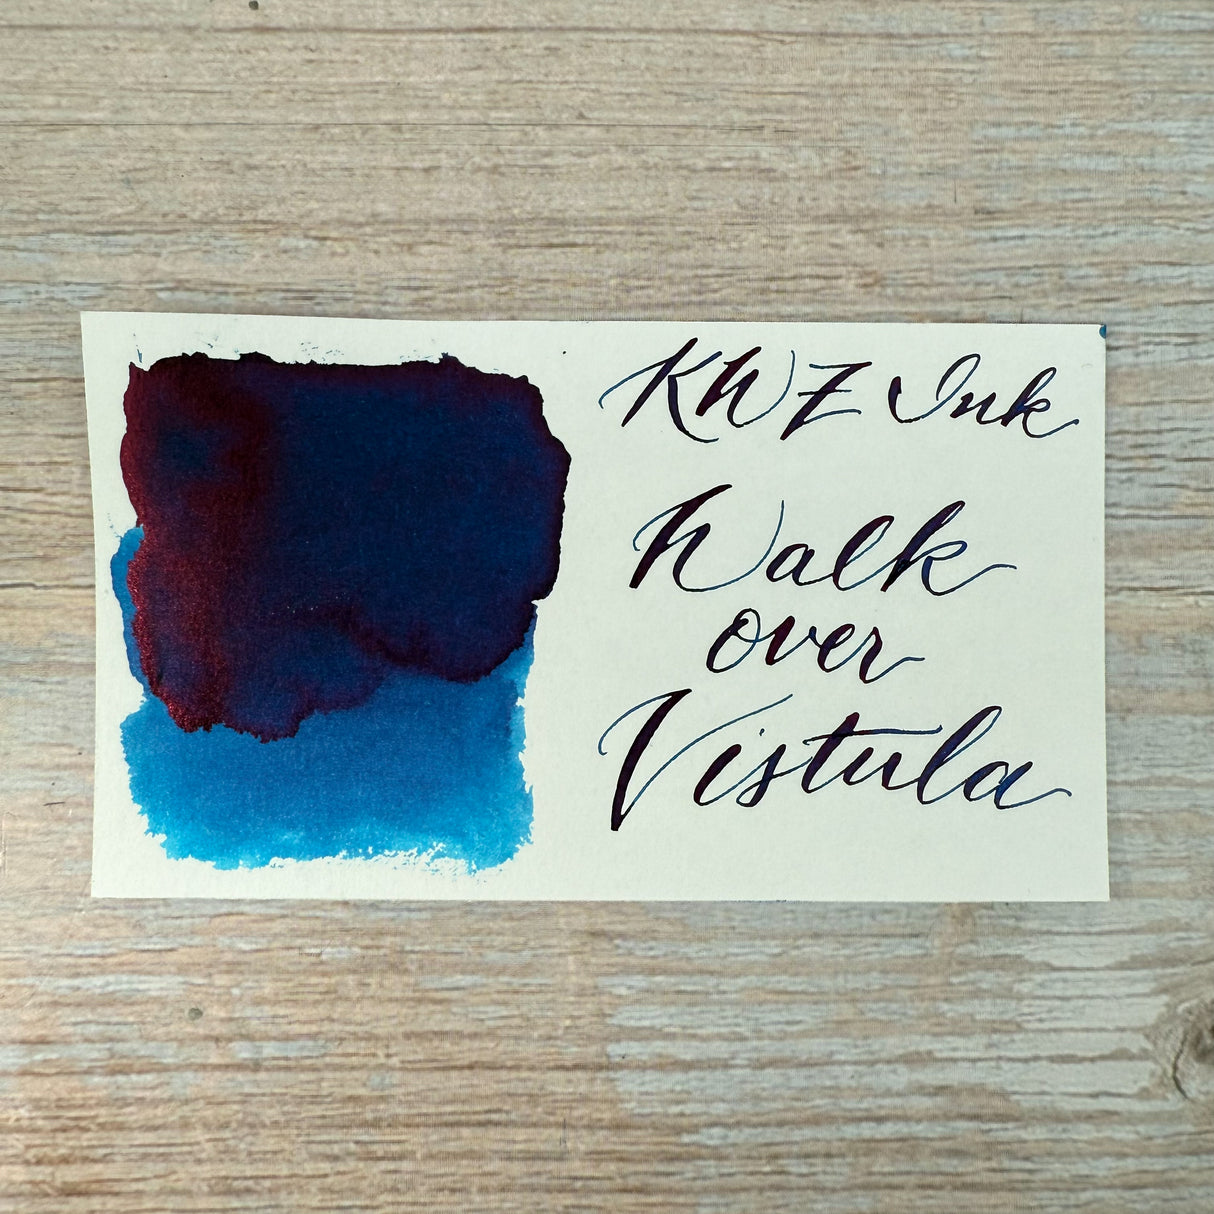 KWZ Ink
Walk
over
Vistula